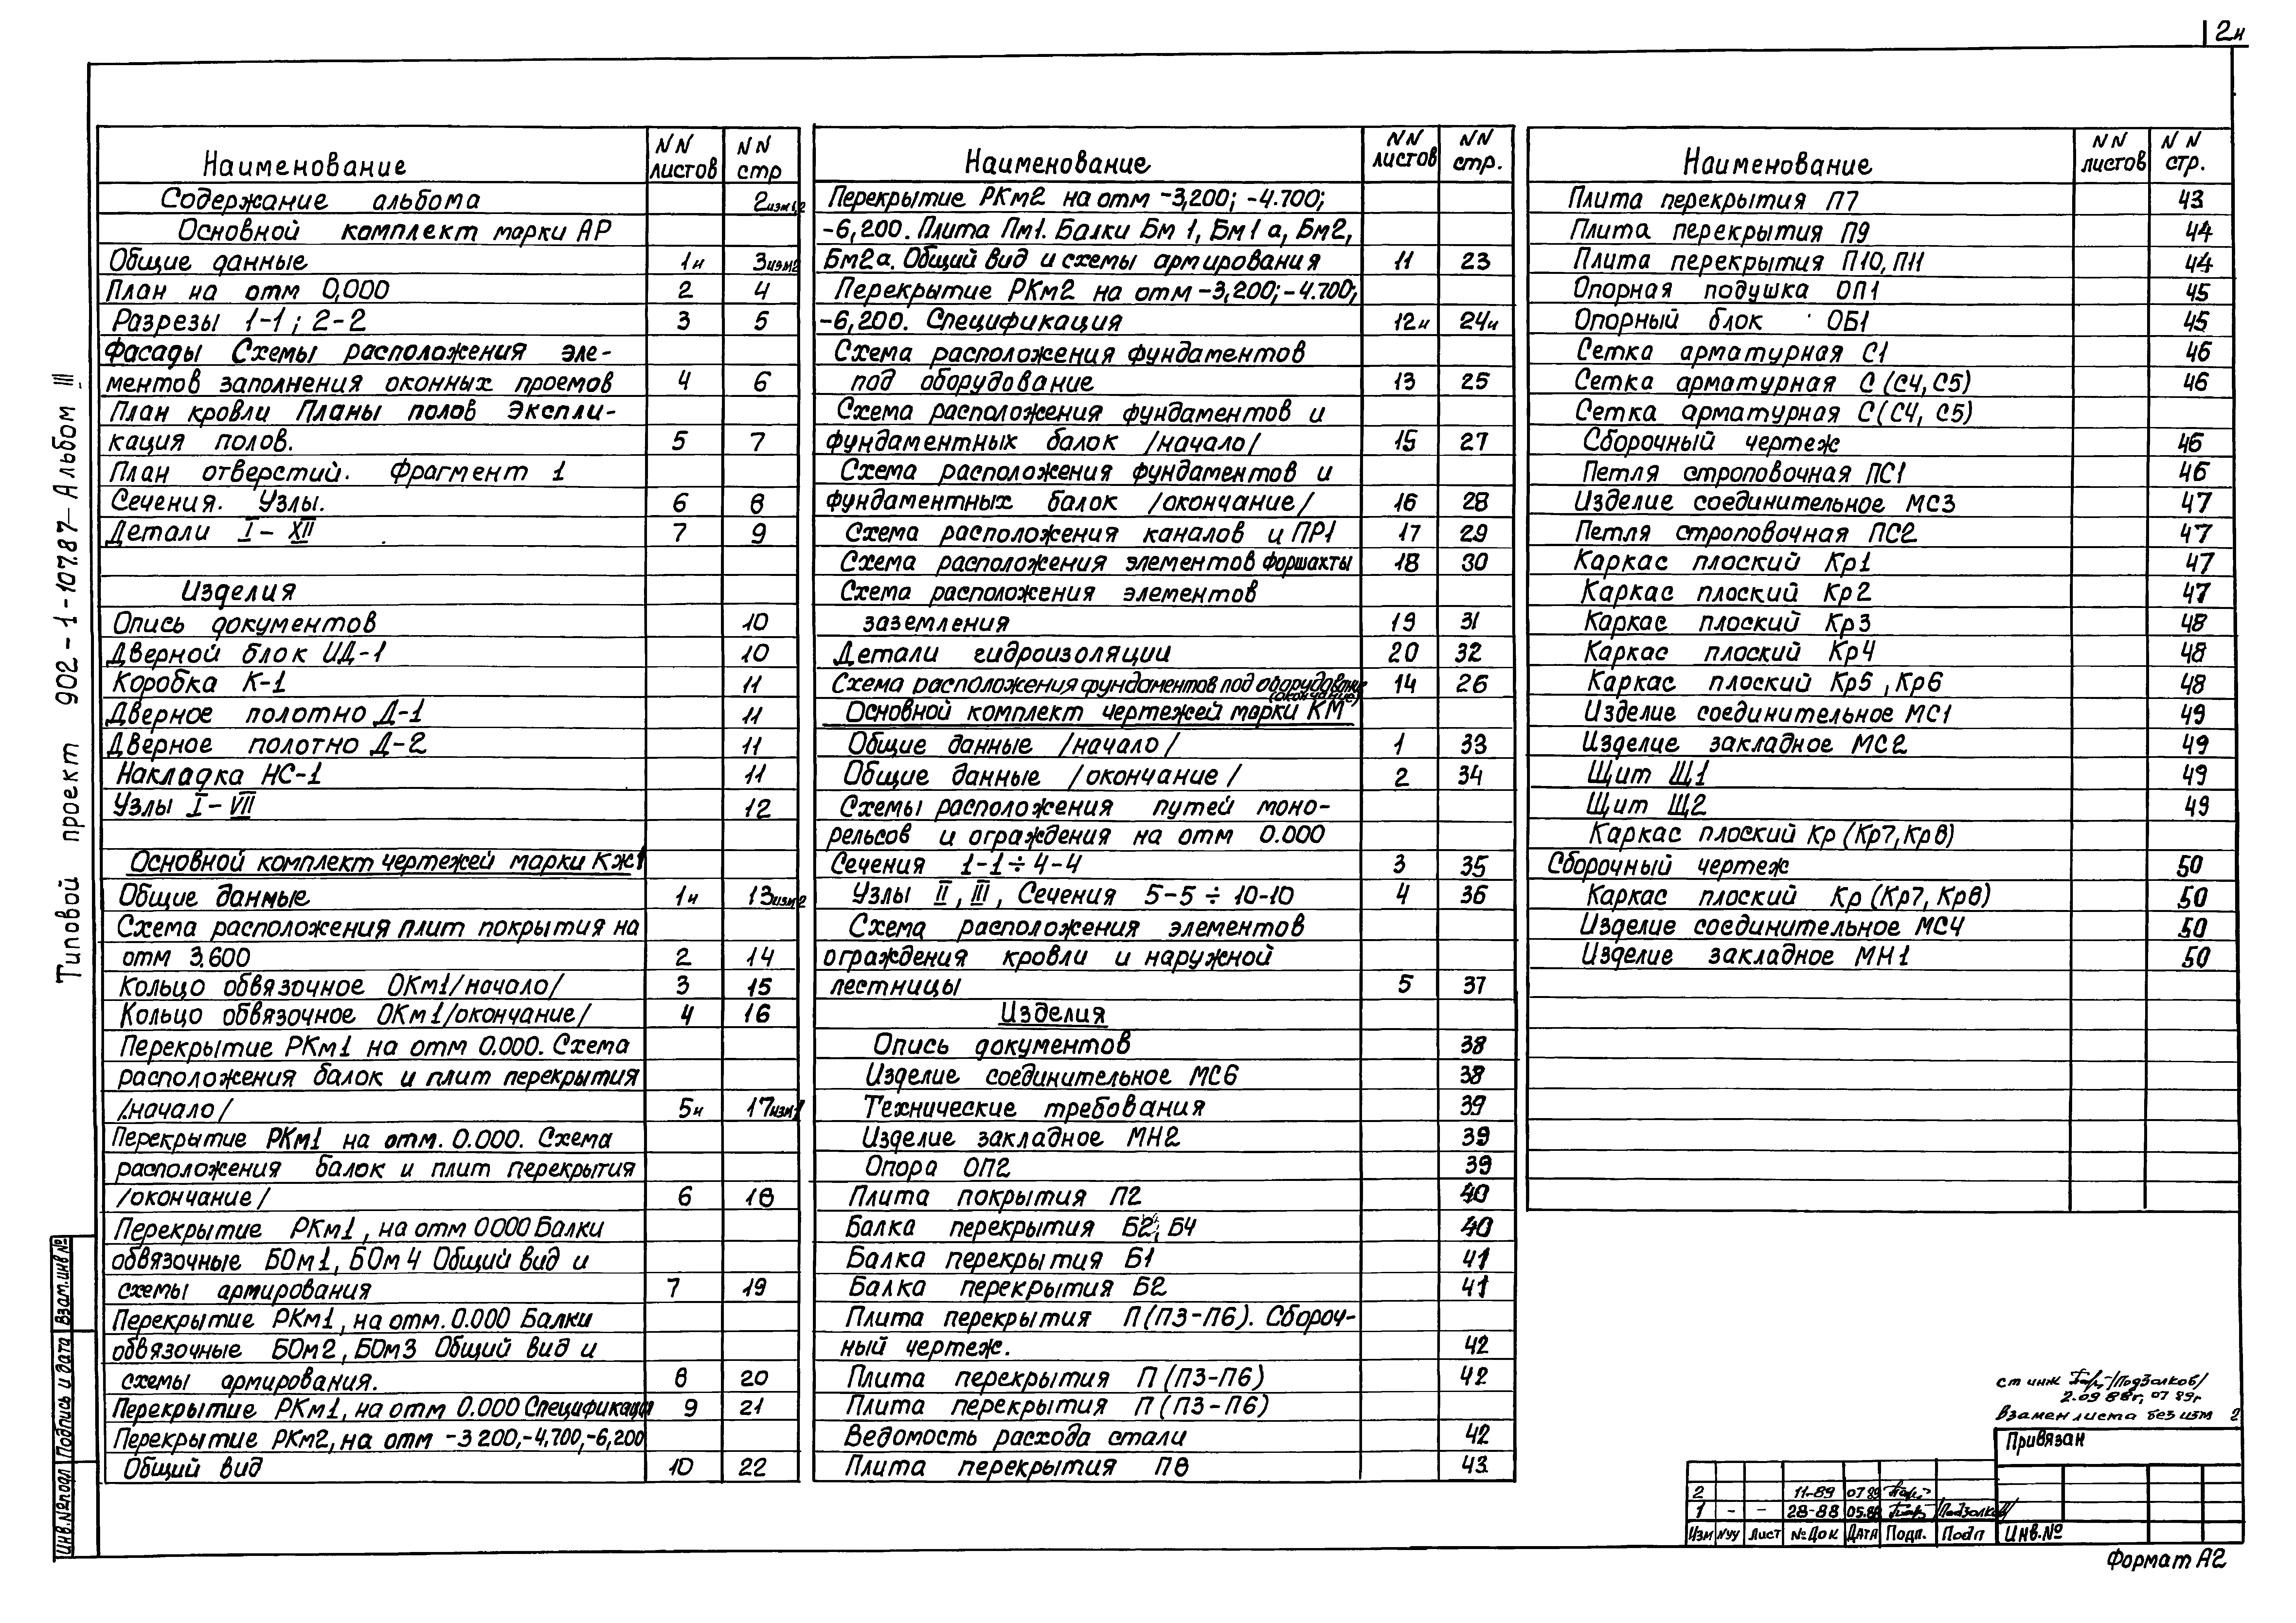 2и
Типовой проект 902-1-107.87- Альбом III
Наименование NN листов NN стр
Содержание альбома 2изм1,2
Основной комплект марки АР
Общие данные 1и 3изм2
План на отм 0,000 2 4
Разрезы 1-1; 2-2 3 5
Фасады Схемы расположения эле-
ментов заполнения оконных проемов 4 6
План кровли Планы полов Экспли-
кация полов. 5 7
План отверстий. Фрагмент 1
Сечения. Узлы. 6 8
Детали I - XII 7 9
Изделия
Опись документов 10
Дверной блок ИД-1 10
Коробка К-1 11
Дверное полотно Д-1 11
Дверное полотно Д-2 11
Накладка НС-1 11
Узлы I - VII 12
Основной комплект чертежей марки КЖ1
Общие данные 1и 13изм2
Схема расположения плит покрытия на
отм 3.600 2 14
Кольцо обвязочное ОКм1/начало/ 3 15
Кольцо обвязочное ОКм1/окончание/ 4 16
Перекрытие РКм1 на отм 0.000. Схема
расположения балок и плит перекрытия
/начало/ 5и 17изм1
Перекрытие РКм1 на отм. 0.000. Схема
расположения балок и плит перекрытия
/окончание/ 6 18
Перекрытие РКм1, на отм 0000 Балки
обвязочные БОм1, БОм4 Общий вид и
схемы армирования 7 19
Перекрытие РКм1, на отм. 0.000 Балки
обвязочные БОм2, БОм3 Общий вид и
схемы армирования. 8 20
Перекрытие РКм1, на отм 0.000 Спецификация 9 21
Перекрытие РКм2, на отм -3 200,-4,700,-6,200
Общий вид 10 22
Наименование NN листов NN стр.
Перекрытие РКм2 на отм -3,200; -4.700;
-6,200. Плита Пм1. Балки Бм 1, Бм1 а, Бм2,
Бм2а. Общий вид и схемы армирования 11 23
Перекрытие РКм2 на отм -3,200; -4.700;
-6,200. Спецификация 12и 24и
Схема расположения фундаментов
под оборудование 13 25
Схема расположения фундаментов и
фундаментных балок /начало/ 15 27
Схема расположения фундаментов и
фундаментных балок /окончание/ 16 28
Схема расположения каналов и ПР1 17 29
Схема расположения элементов форшахты 18 30
Схема расположения элементов
заземления 19 31
Детали гидроизоляции 20 32
Схема расположения фундаментов под оборудование (окончание) 14 26
Основной комплект чертежей марки КМ
Общие данные /начало/ 1 33
Общие данные /окончание/ 2 34
Схемы расположения путей моно-
рельсов и ограждения на отм 0.000
Сечения 1-1 ÷ 4-4 3 35
Узлы II, III, Сечения 5-5 ÷ 10-10 4 36
Схема расположения элементов
ограждения кровли и наружной
лестницы 5 37
Изделия
Опись документов 38
Изделие соединительное МС6 38
Технические требования 39
Изделие закладное МН2 39
Опора ОП2 39
Плита покрытия П2 40
Балка перекрытия Б2, Б4 40
Балка перекрытия Б1 41
Балка перекрытия Б2 41
Плита перекрытия П(П3-П6). Сбороч-
ный чертеж. 42
Плита перекрытия П (П3-П6) 42
Плита перекрытия П (П3-П6)
Ведомость расхода стали 42
Плита перекрытия П8 43
Наименование NN листов NN стр.
Плита перекрытия П7 43
Плита перекрытия П9 44
Плита перекрытия П10, П11 44
Опорная подушка ОП1 45
Опорный блок ОБ1 45
Сетка арматурная С1 46
Сетка арматурная С (С4, С5) 46
Сетка арматурная С(С4, С5)
Сборочный чертеж 46
Петля строповочная ПС1 46
Изделие соединительное МС3 47
Петля строповочная ПС2 47
Каркас плоский Кр1 47
Каркас плоский Кр2 47
Каркас плоский Кр3 48
Каркас плоский Кр4 48
Каркас плоский Кр5, Кр6 48
Изделие соединительное МС1 49
Изделие закладное МС2 49
Щит Щ1 49
Щит Щ2 49
Каркас плоский Кр (Кр7, Кр8)
Сборочный чертеж 50
Каркас плоский Кр (Кр7, Кр8) 50
Изделие соединительное МС4 50
Изделие закладное МН1 50
ст инж /Подзолков/
2.09 88г, 07 89г
Взамен листа без изм 2
Привязан
2 11-89 07 89
1 - - 28-88 05.88 /Подзолков/
Изм №уч Лист №Док Дата Подп. Подп Инв.№
Формат А2
Инв.№подл Подпись и дата Взам.инв №